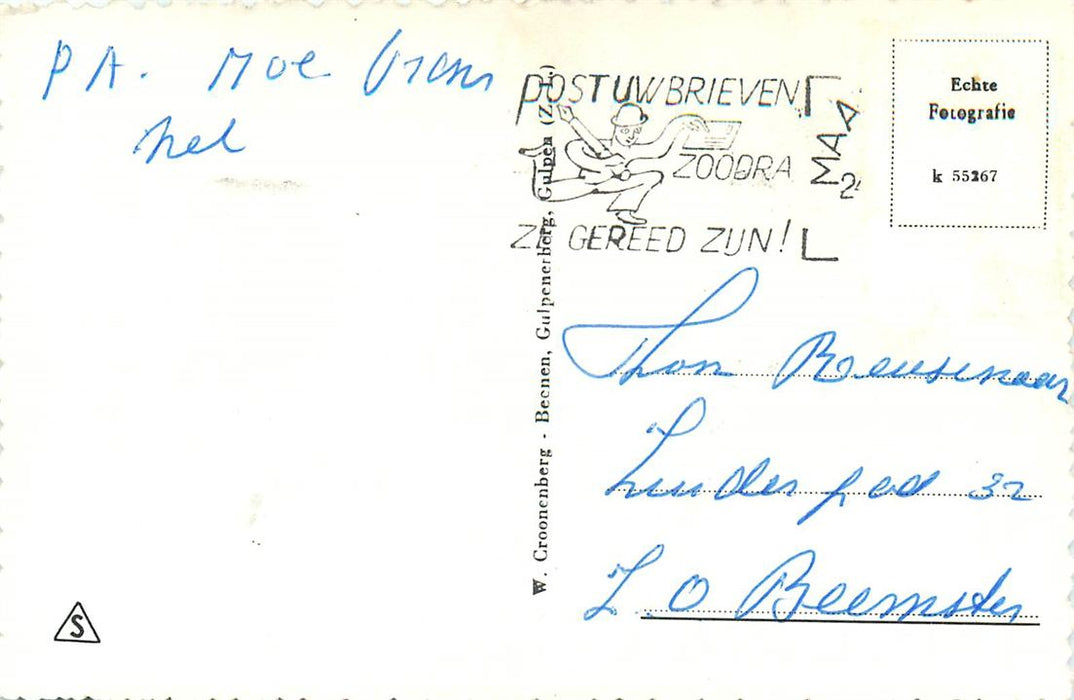 P A. Moe
POST UW BRIEVEN
ZOODRA
ZE GEREED ZIJN!
MAA
2
Echte
Fotografie
k 55267
W. Croonenberg - Beenen, Gulpenerberg, Gulpen (Z.-L.)
Thon Beusenaar
pad 32
Z. O Beemster
S